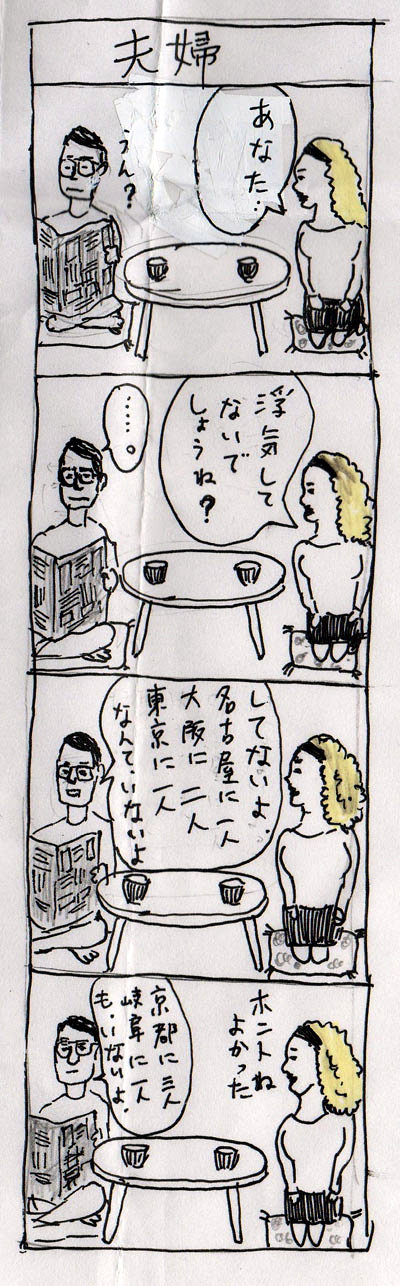 夫婦
あなた.
うん?
浮気して
ないで
しょうね?
・・・・・。
してないよ.
名古屋に一人
大阪に二人
東京に一人
なんて、いないよ
ホントね
よかった
京都に三人
岐阜に一人
も、いないよ.